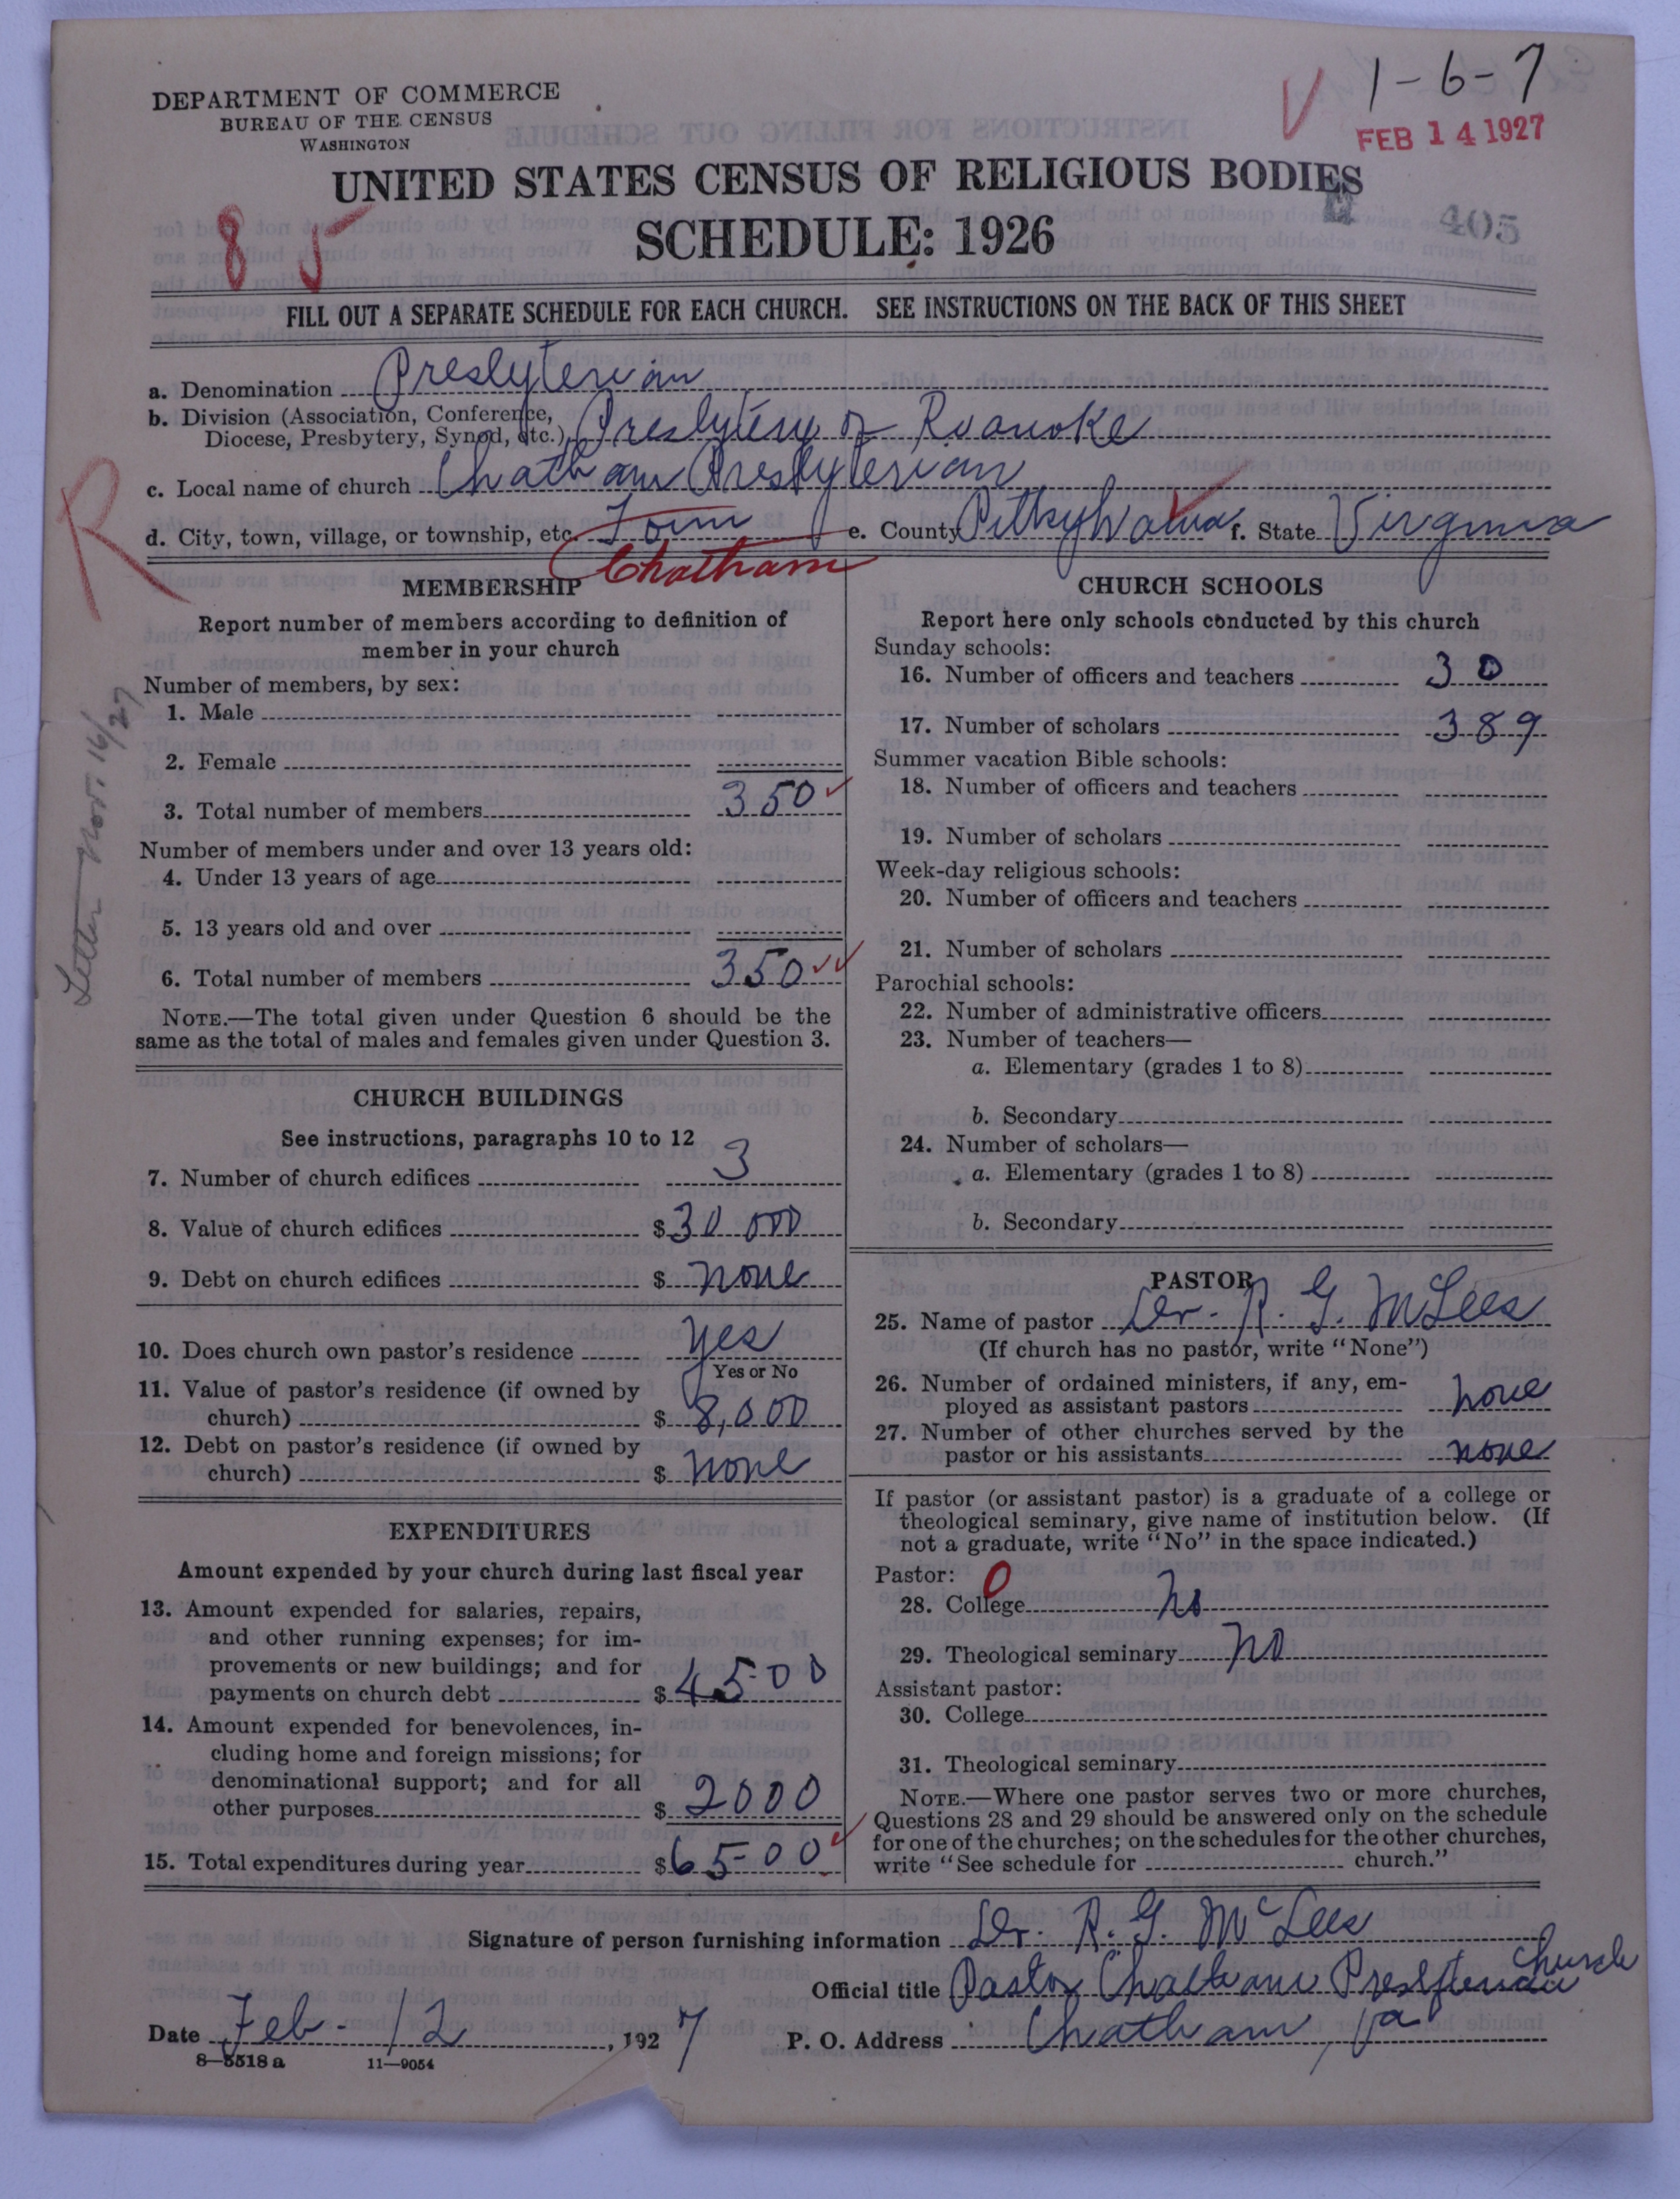 DEPARTMENT OF COMMERCE
BUREAU OF THE CENSUS
WASHINGTON
1-6-7
FEB 14 1927
UNITED STATES CENSUS OF RELIGIOUS BODIES
SCHEDULE: 1926
405
8 5
FILL OUT A SEPARATE SCHEDULE FOR EACH CHURCH. SEE INSTRUCTIONS ON THE BACK OF THIS SHEET
a. Denomination Presbyterian
b. Division (Association, Conference,
Diocese, Presbytery, Synod, etc.) Presbytery of Roanoke
c. Local name of church Chatham Presbyterian
d. City, town, village, or township, etc. Town e. County Pittsylvania f. State Virginia
Chatham
R
Letter Nov. 16/27
MEMBERSHIP
Report number of members according to definition of
member in your church
Number of members, by sex:
1. Male
2. Female
3. Total number of members 350
Number of members under and over 13 years old:
4. Under 13 years of age
5. 13 years old and over
6. Total number of members 350
NOTE.—The total given under Question 6 should be the
same as the total of males and females given under Question 3.
CHURCH BUILDINGS
See instructions, paragraphs 10 to 12
7. Number of church edifices 3
8. Value of church edifices $30 000
9. Debt on church edifices $ none
10. Does church own pastor's residence yes
Yes or No
11. Value of pastor's residence (if owned by
church) $ 8,000
12. Debt on pastor's residence (if owned by
church) $ none
EXPENDITURES
Amount expended by your church during last fiscal year
13. Amount expended for salaries, repairs,
and other running expenses; for im-
provements or new buildings; and for
payments on church debt $ 4500
14. Amount expended for benevolences, in-
cluding home and foreign missions; for
denominational support; and for all
other purposes $ 2000
15. Total expenditures during year $6500
CHURCH SCHOOLS
Report here only schools conducted by this church
Sunday schools:
16. Number of officers and teachers 30
17. Number of scholars 389
Summer vacation Bible schools:
18. Number of officers and teachers
19. Number of scholars
Week-day religious schools:
20. Number of officers and teachers
21. Number of scholars
Parochial schools:
22. Number of administrative officers
23. Number of teachers—
a. Elementary (grades 1 to 8)
b. Secondary
24. Number of scholars—
a. Elementary (grades 1 to 8)
b. Secondary
PASTOR
25. Name of pastor Dr. R. G. McLees
(If church has no pastor, write "None")
26. Number of ordained ministers, if any, em-
ployed as assistant pastors none
27. Number of other churches served by the
pastor or his assistants none
If pastor (or assistant pastor) is a graduate of a college or
theological seminary, give name of institution below. (If
not a graduate, write "No" in the space indicated.)
Pastor: 0
28. College no
29. Theological seminary no
Assistant pastor:
30. College
31. Theological seminary
NOTE.—Where one pastor serves two or more churches,
Questions 28 and 29 should be answered only on the schedule
for one of the churches; on the schedules for the other churches,
write "See schedule for church."
Signature of person furnishing information Dr. R. G. McLees
Official title Pastor Chatham Presbyterian Church
Date Feb - 12, 1927 P. O. Address Chatham, Va
8—5518 a 11—9054